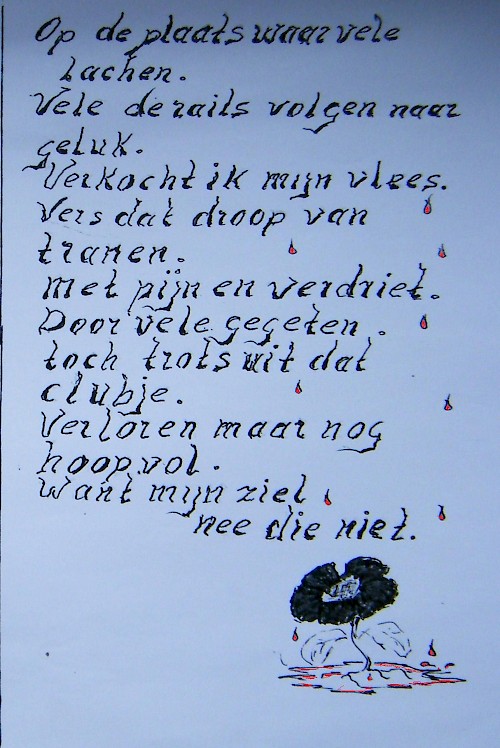 Op de plaats waar vele
lachen.
Vele de rails volgen naar
geluk.
Verkocht ik mijn vlees.
Vers dat droop van
tranen.
Met pijn en verdriet.
Door vele gegeten.
toch trots uit dat
clubje.
Verloren maar nog
hoopvol.
Want mijn ziel
nee die niet.